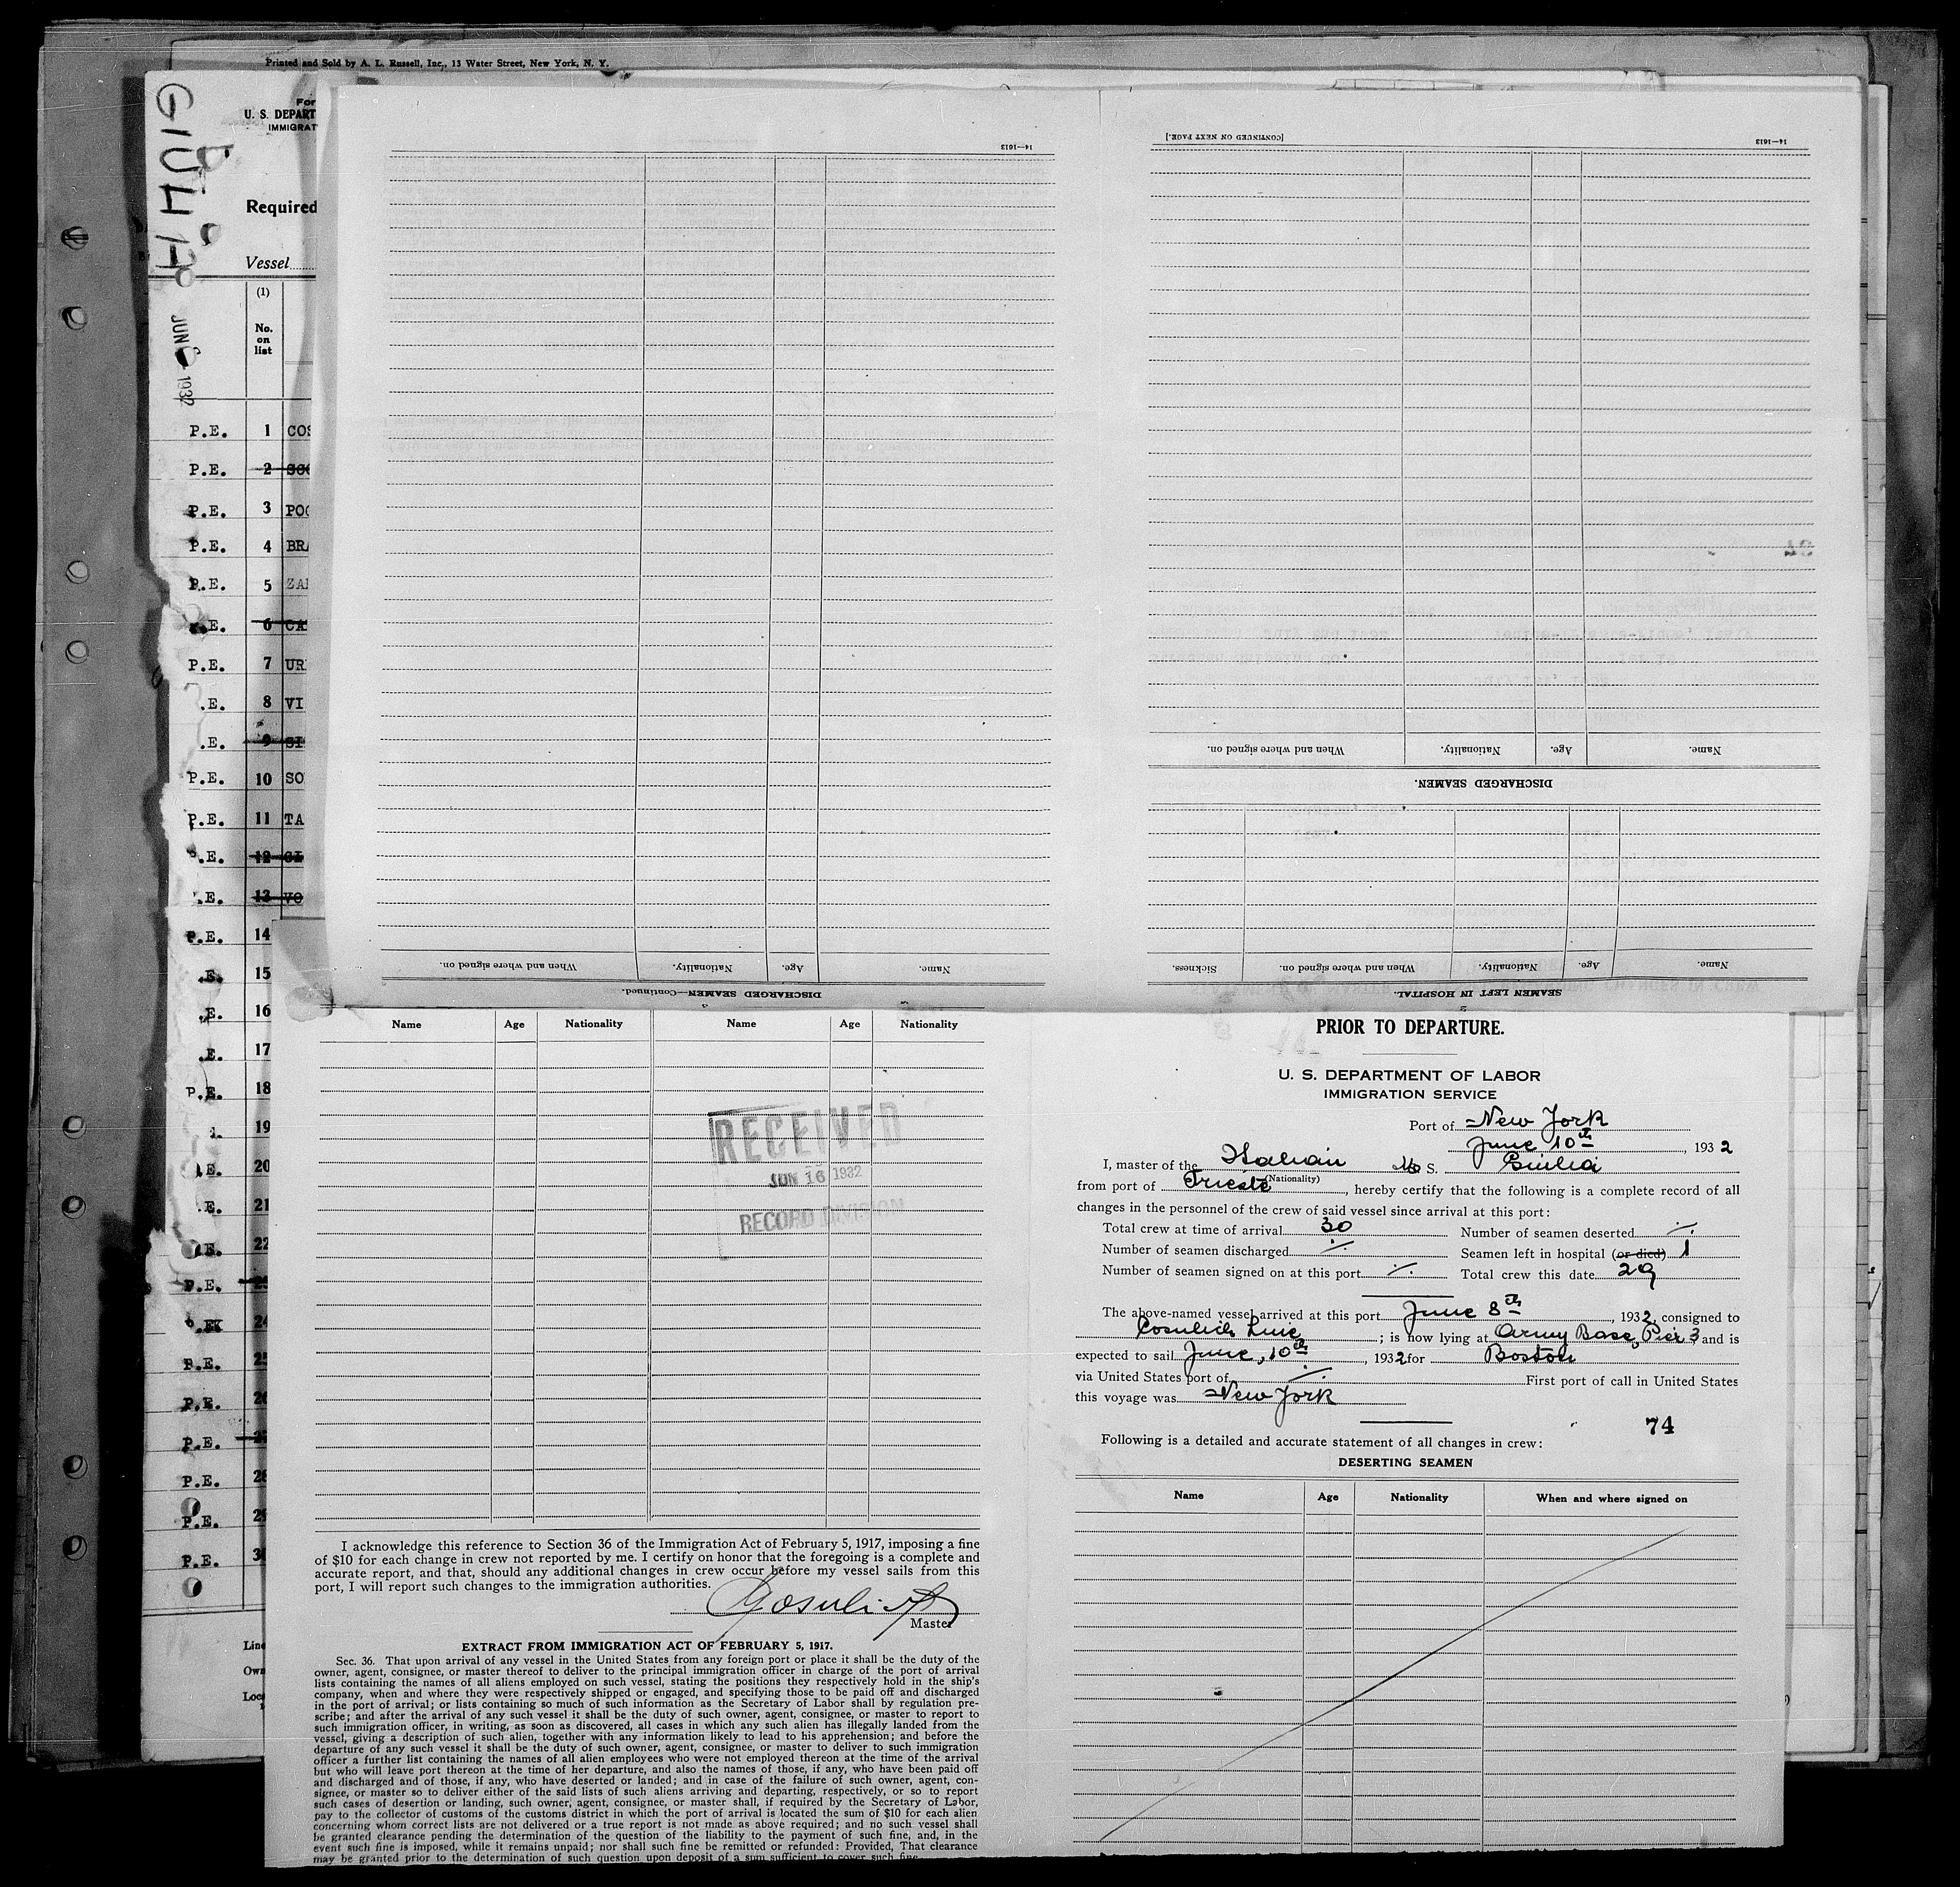 Printed and Sold by A. L. Russell, Inc., 13 Water Street, New York, N. Y.
GIULIA
JUN 1932
For
U. S. DEPART
IMMIGRAT
Required
Vessel
(1)
No.
on
list
P.E. 1 COS
P.E. 2
P.E. 3 POC
P.E. 4 BRA
P.E. 5 ZAN
.E. 6 CA
P.E. 7 UR
.E. 8 VI
.E. 9 SI
P.E. 10 SO
P.E. 11 TA
.E. 12
.E. 13 VO
P.E. 14
.E. 15
.E. 16
.E. 17
P.E. 18
19
.E. 20
.E. 21
.E. 22
P.E.
24
P.E. 25
P.E. 26
P.E. 27
P.E. 28
P.E. 29
P.E. 30
Line
Own
Loc
14—1613
DISCHARGED SEAMEN—Continued.
Name. Age. Nationality. When and where signed on.
2
SEAMEN LEFT IN HOSPITAL.
Name. Age. Nationality. When and where signed on. Sickness.
DISCHARGED SEAMEN.
Name. Age. Nationality. When and where signed on.
14—1613
[CONTINUED ON NEXT PAGE.]
Name Age Nationality Name Age Nationality
RECEIVED
JUN 16 1932
RECORD DIVISION
I acknowledge this reference to Section 36 of the Immigration Act of February 5, 1917, imposing a fine
of $10 for each change in crew not reported by me. I certify on honor that the foregoing is a complete and
accurate report, and that, should any additional changes in crew occur before my vessel sails from this
port, I will report such changes to the immigration authorities.
Master
EXTRACT FROM IMMIGRATION ACT OF FEBRUARY 5, 1917.
Sec. 36. That upon arrival of any vessel in the United States from any foreign port or place it shall be the duty of the
owner, agent, consignee, or master thereof to deliver to the principal immigration officer in charge of the port of arrival
lists containing the names of all aliens employed on such vessel, stating the positions they respectively hold in the ship's
company, when and where they were respectively shipped or engaged, and specifying those to be paid off and discharged
in the port of arrival; or lists containing so much of such information as the Secretary of Labor shall by regulation pre-
scribe; and after the arrival of any such vessel it shall be the duty of such owner, agent, consignee, or master to report to
such immigration officer, in writing, as soon as discovered, all cases in which any such alien has illegally landed from the
vessel, giving a description of such alien, together with any information likely to lead to his apprehension; and before the
departure of any such vessel it shall be the duty of such owner, agent, consignee, or master to deliver to such immigration
officer a further list containing the names of all alien employees who were not employed thereon at the time of the arrival
but who will leave port thereon at the time of her departure, and also the names of those, if any, who have been paid off
and discharged and of those, if any, who have deserted or landed; and in case of the failure of such owner, agent, con-
signee, or master so to deliver either of the said lists of such aliens arriving and departing, respectively, or so to report
such cases of desertion or landing, such owner, agent, consignee, or master shall, if required by the Secretary of Labor,
pay to the collector of customs of the customs district in which the port of arrival is located the sum of $10 for each alien
concerning whom correct lists are not delivered or a true report is not made as above required; and no such vessel shall
be granted clearance pending the determination of the question of the liability to the payment of such fine, and, in the
event such fine is imposed, while it remains unpaid; nor shall such fine be remitted or refunded: Provided, That clearance
may be granted prior to the determination of such question upon deposit of a sum sufficient to cover such fine
PRIOR TO DEPARTURE.
U. S. DEPARTMENT OF LABOR
IMMIGRATION SERVICE
Port of New York
June 10th, 1932
I, master of the Italian M. S. Giulia
(Nationality)
from port of Trieste, hereby certify that the following is a complete record of all
changes in the personnel of the crew of said vessel since arrival at this port:
Total crew at time of arrival 30 Number of seamen deserted ./.
Number of seamen discharged ./. Seamen left in hospital (or died) 1
Number of seamen signed on at this port ./. Total crew this date 29
The above-named vessel arrived at this port June 8th, 1932, consigned to
Cosulich Line; is now lying at Army Base, Pier 3 and is
expected to sail June, 10th, 1932 for Boston
via United States port of ./. First port of call in United States
this voyage was New York
74
Following is a detailed and accurate statement of all changes in crew:
DESERTING SEAMEN
Name Age Nationality When and where signed on